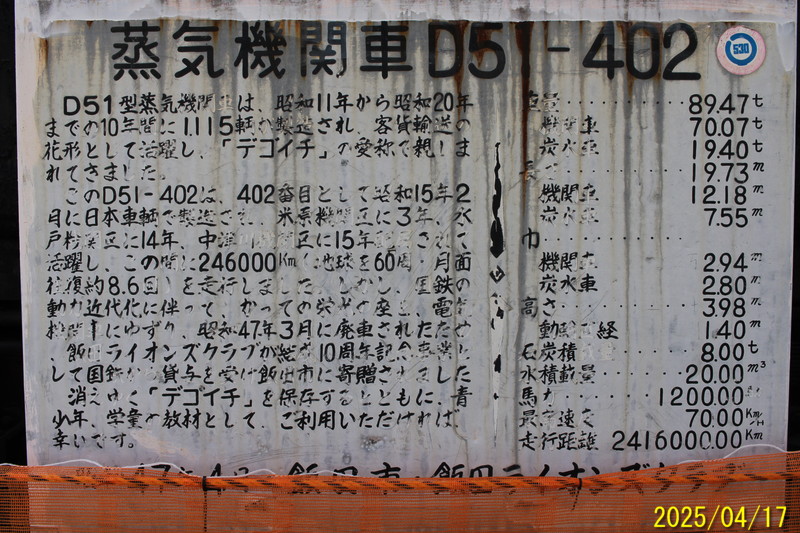 蒸気機関車D51-402
530
D51型蒸気機関車は、昭和11年から昭和20年
までの10年間に1,115輌が製造され、客貨輸送の
花形として活躍し、「デゴイチ」の愛称で親しま
れてきました。
このD51-402は、402番目として昭和15年2
月に日本車輌で製造され、米原機関区に3年、水
戸機関区に14年、中津川機関区に15年配属されて
活躍し、この間に246000Km(地球を60周・月面
往復約8.6回)を走行しました。しかし、国鉄の
動力近代化に伴って、かつての栄光の座を、電気
機関車にゆずり、昭和47年3月に廃車されたため
、飯田ライオンズクラブが結成10周年記念事業と
して国鉄から貸与を受け飯田市に寄贈されました
消えゆく「デゴイチ」を保存するとともに、青
少年、学童の教材として、ご利用いただければ
幸いです。
47年4月 飯田市・飯田ライオンズクラブ
重量・・・・・・89.47t
機関車 70.07t
炭水車 19.40t
長さ・・・・・・19.73m
機関車 12.18m
炭水車 7.55m
巾・・・・・・
機関車 2.94m
炭水車 2.80m
高さ・・・・・・3.98m
動輪直経 1.40m
石炭積載量 8.00t
水積載量 20.00m³
馬力・・・・・・1200.00
最高速度 70.00Km/H
走行距離 2416000.00Km
2025/04/17